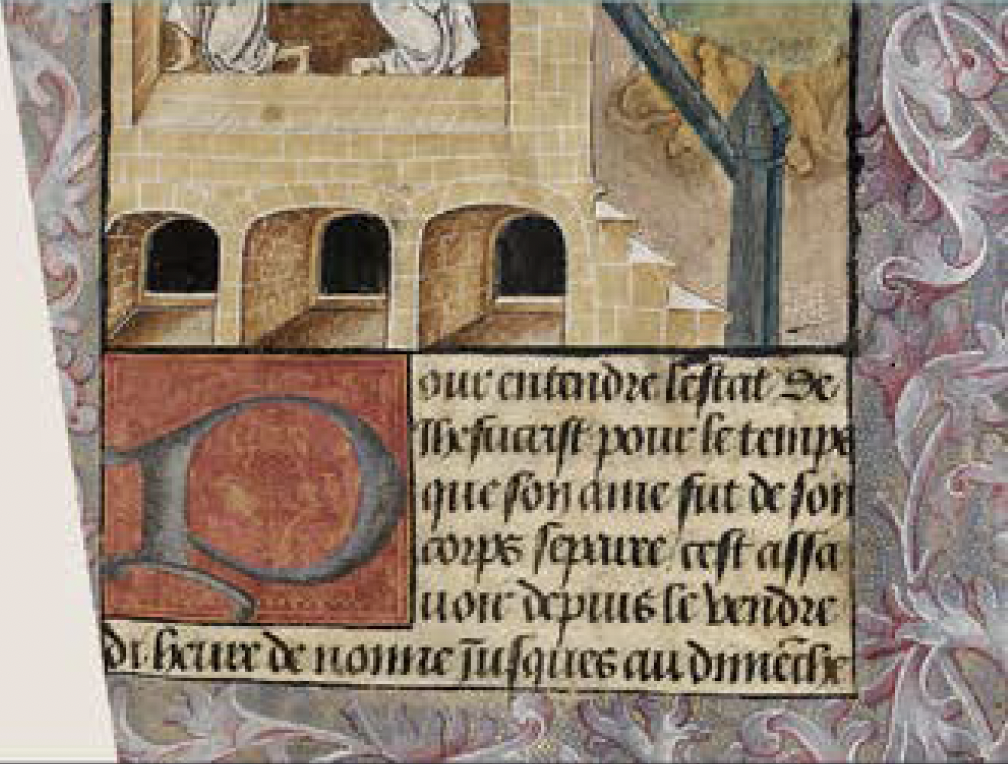 Pour entendre lestat de
Jhesucrist pour le temps
que son ame fut de son
corps separee cest assa
uoir depuis le vendre
di heure de nonne jusques au dimēche